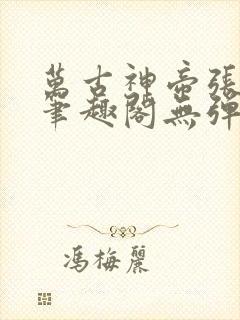 萬古神帝張
筆趣閣無彈
馮梅麗